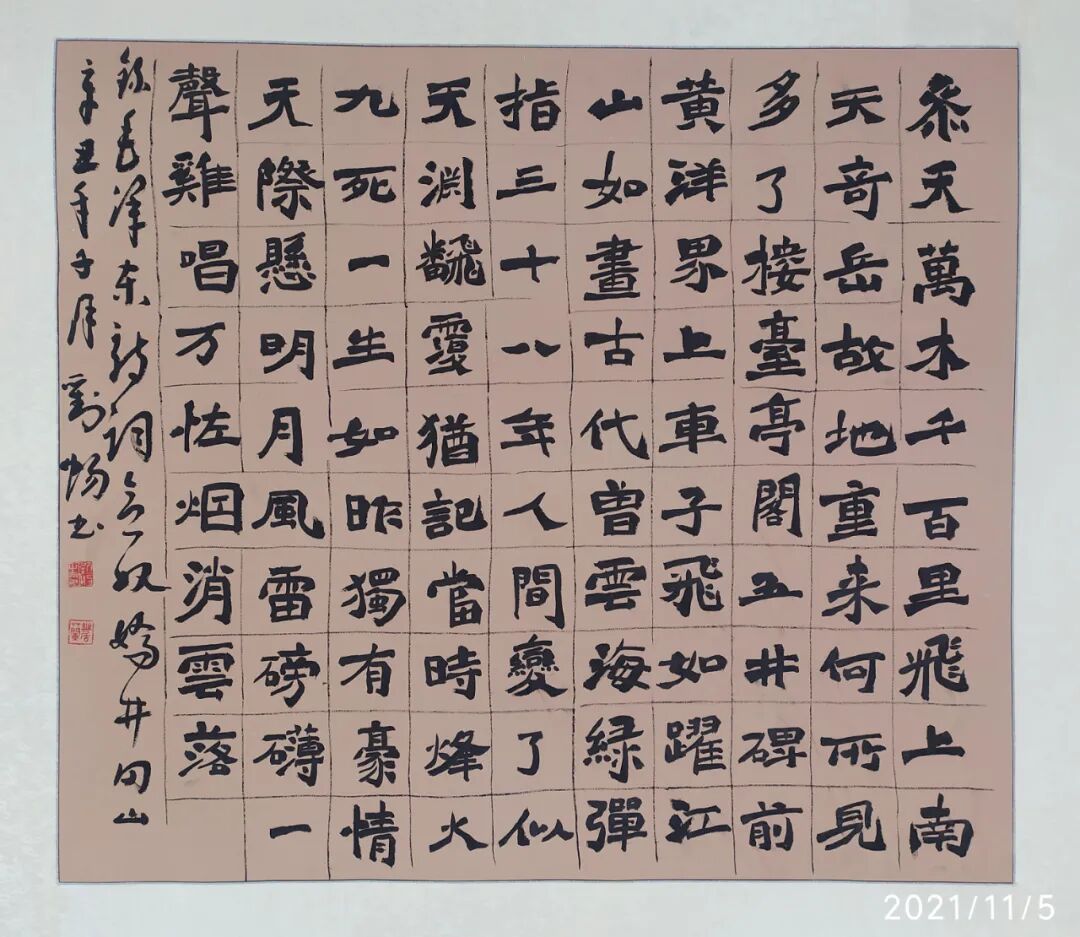 叅天萬木千百里飛上南
天奇岳故地重来何所見
多了接臺亭閣五井碑前
黃洋界上車子飛如躍江
山如畫古代曾雲海綠彈
指三十八年人間變了似
天渊飜覆猶記當時烽火
九死一生如昨獨有豪情
天際懸明月風雷磅礴一
聲雞唱万怪烟消雲落
錄毛澤東詩詞念奴嬌井冈山
辛丑年子月劉书
2021/11/5